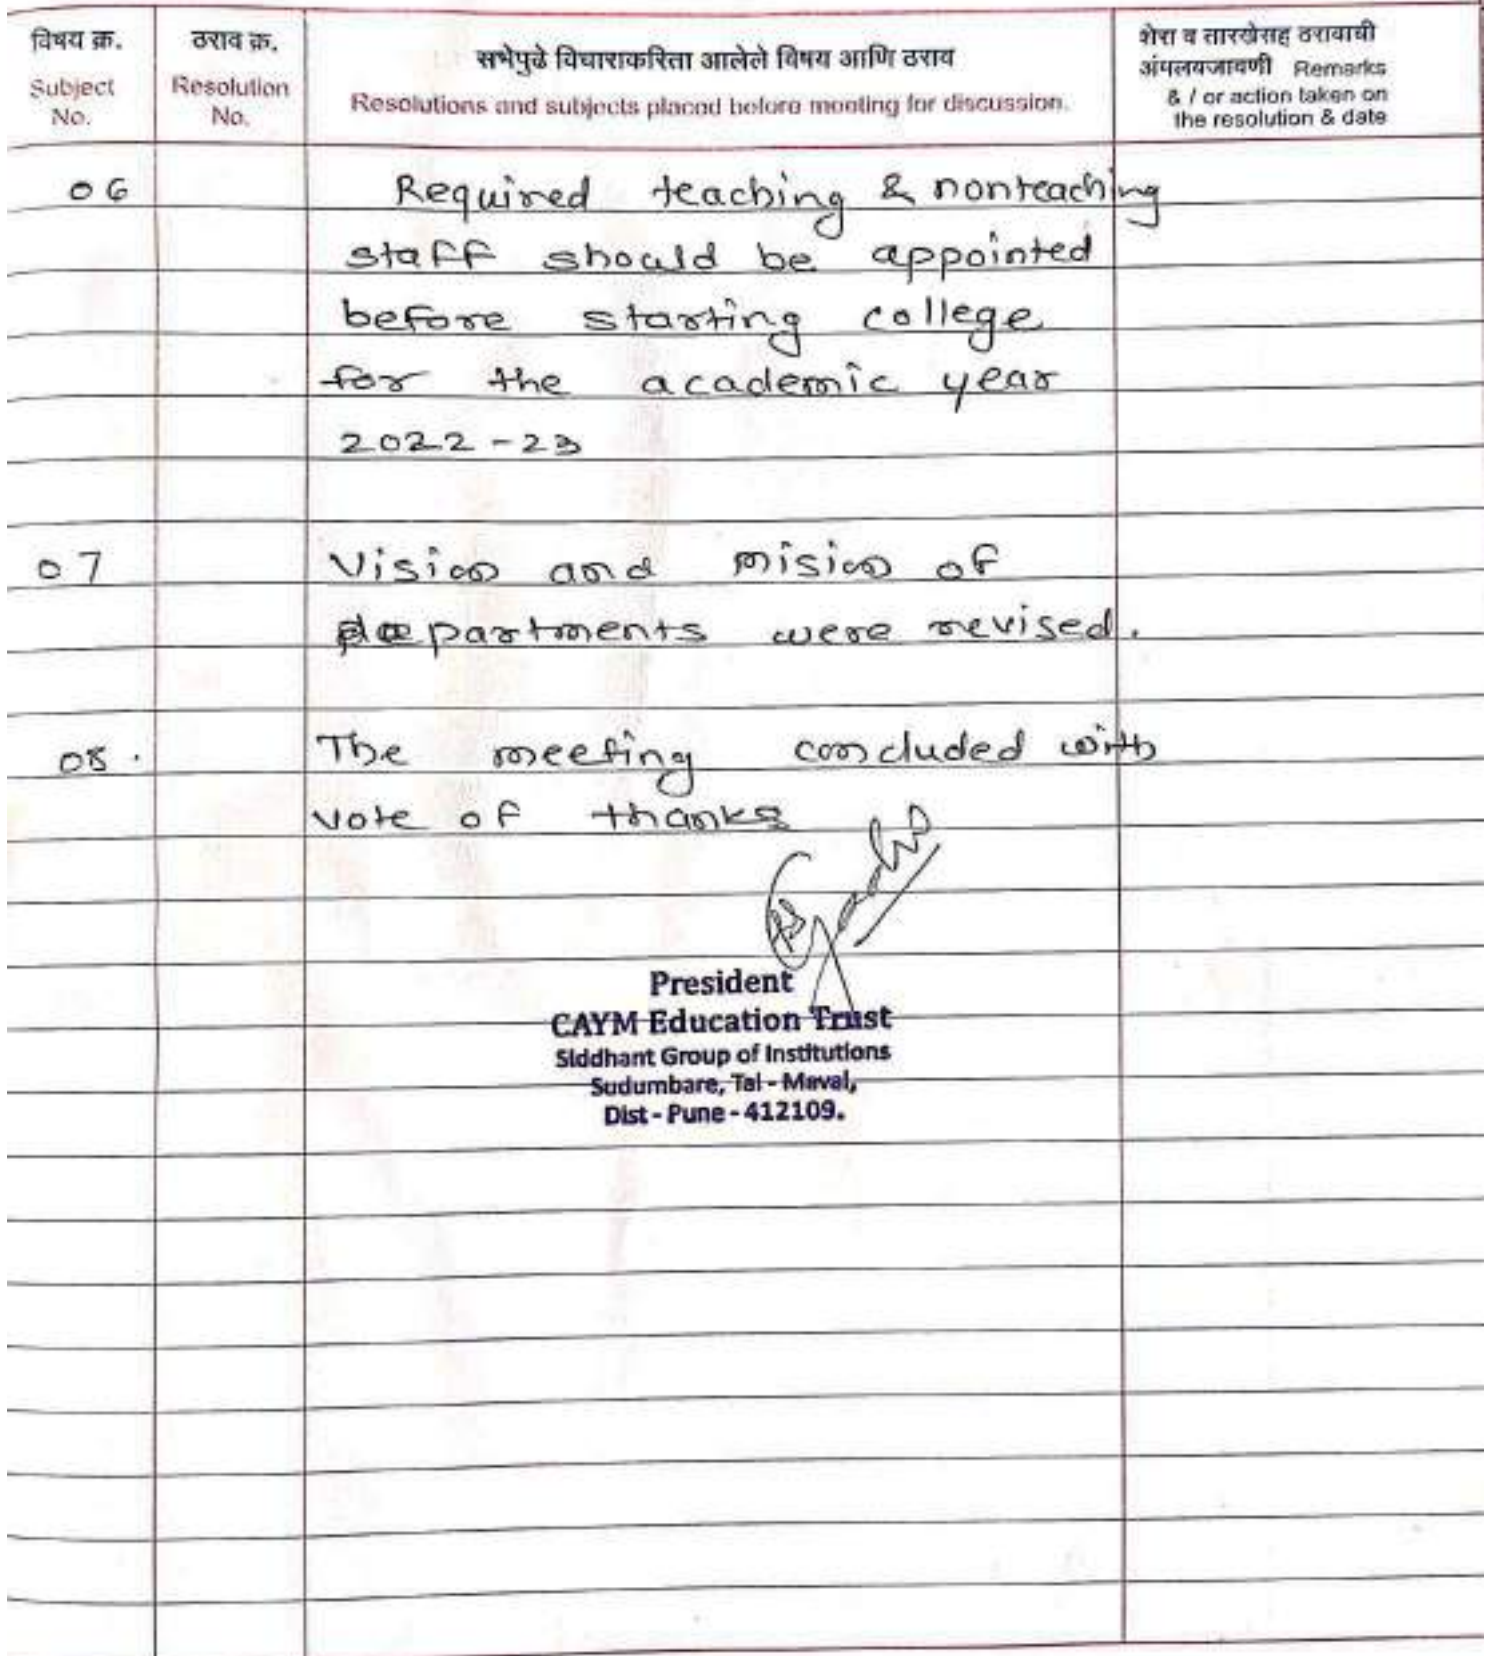 विषय क्र.
Subject
No.
ठराव क्र.
Resolution
No.
सभेपुढे विचाराकरिता आलेले विषय आणि ठराव
Resolutions and subjects placed before meeting for discussion.
शेरा व तारखेसह ठरावाची
अंमलबजावणी Remarks
& / or action taken on
the resolution & date
06 Required teaching & nonteaching
staff should be appointed
before starting college
for the academic year
2022-23
07 Vision and mision of
departments were revised.
08. The meeting concluded with
vote of thanks
President
CAYM Education Trust
Siddhant Group of Institutions
Sudumbare, Tal - Maval,
Dist - Pune - 412109.